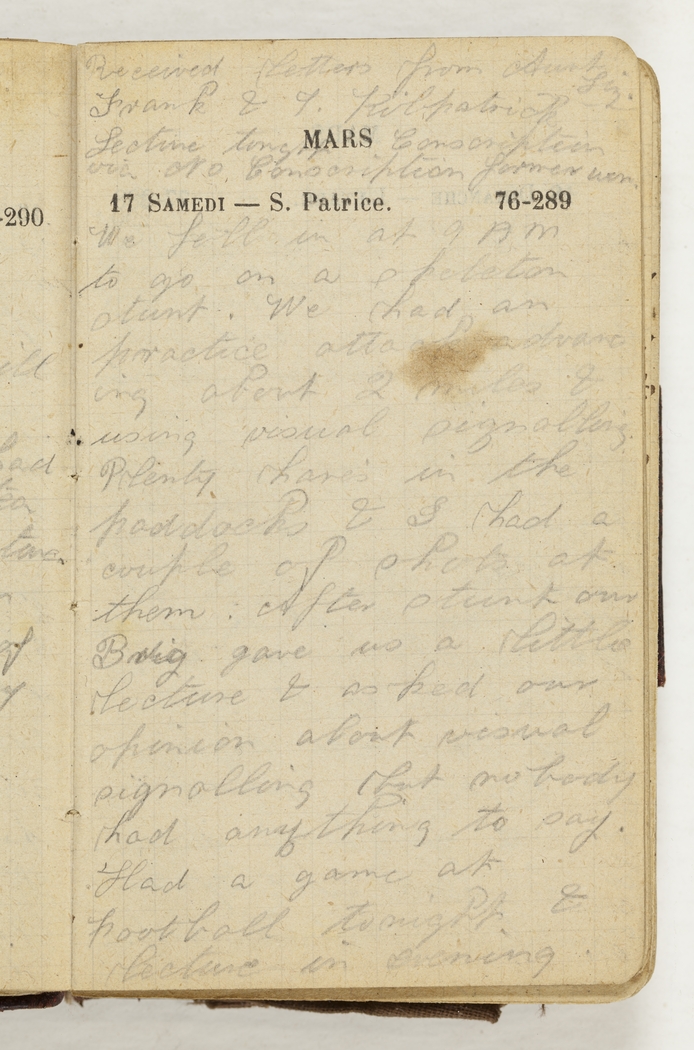 Received letters from Aunt Liz.
Frank & T. Kilpatrick
MARS
Lecture tonight Conscription
via No. Conscription former won.
17 SAMEDI — S. Patrice. 76-289
-290
We fell in at 9 AM
to go on a skeleton
stunt. We had an
practice attack advanc
ing about 2 miles &
using visual signalling.
Plenty hares in the
paddocks & I had a
couple of shots at
them. After stunt our
Brig gave us a little
lecture & asked our
opinion about visual
signalling but nobody
had anything to say.
Had a game at
football tonight &
lecture in evening.
ill
had